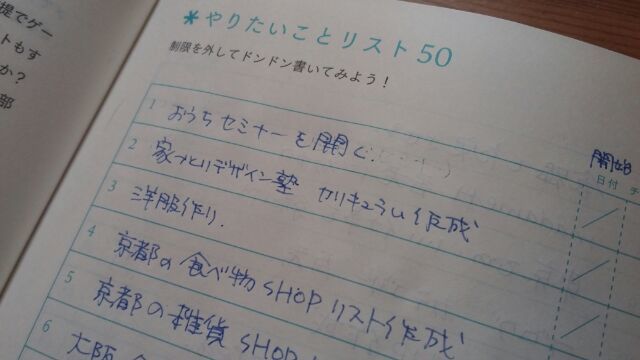 提でゲー
トもす
か？
部
*やりたいことリスト50
制限を外してドンドン書いてみよう！
開始
日付
1 おうちセミナーを開く.
2 家づくりデザイン塾 カリキュラム作成
3 洋服作り.
4 京都の食べ物SHOPリスト作成
5 京都の雑貨SHOP
6 大阪